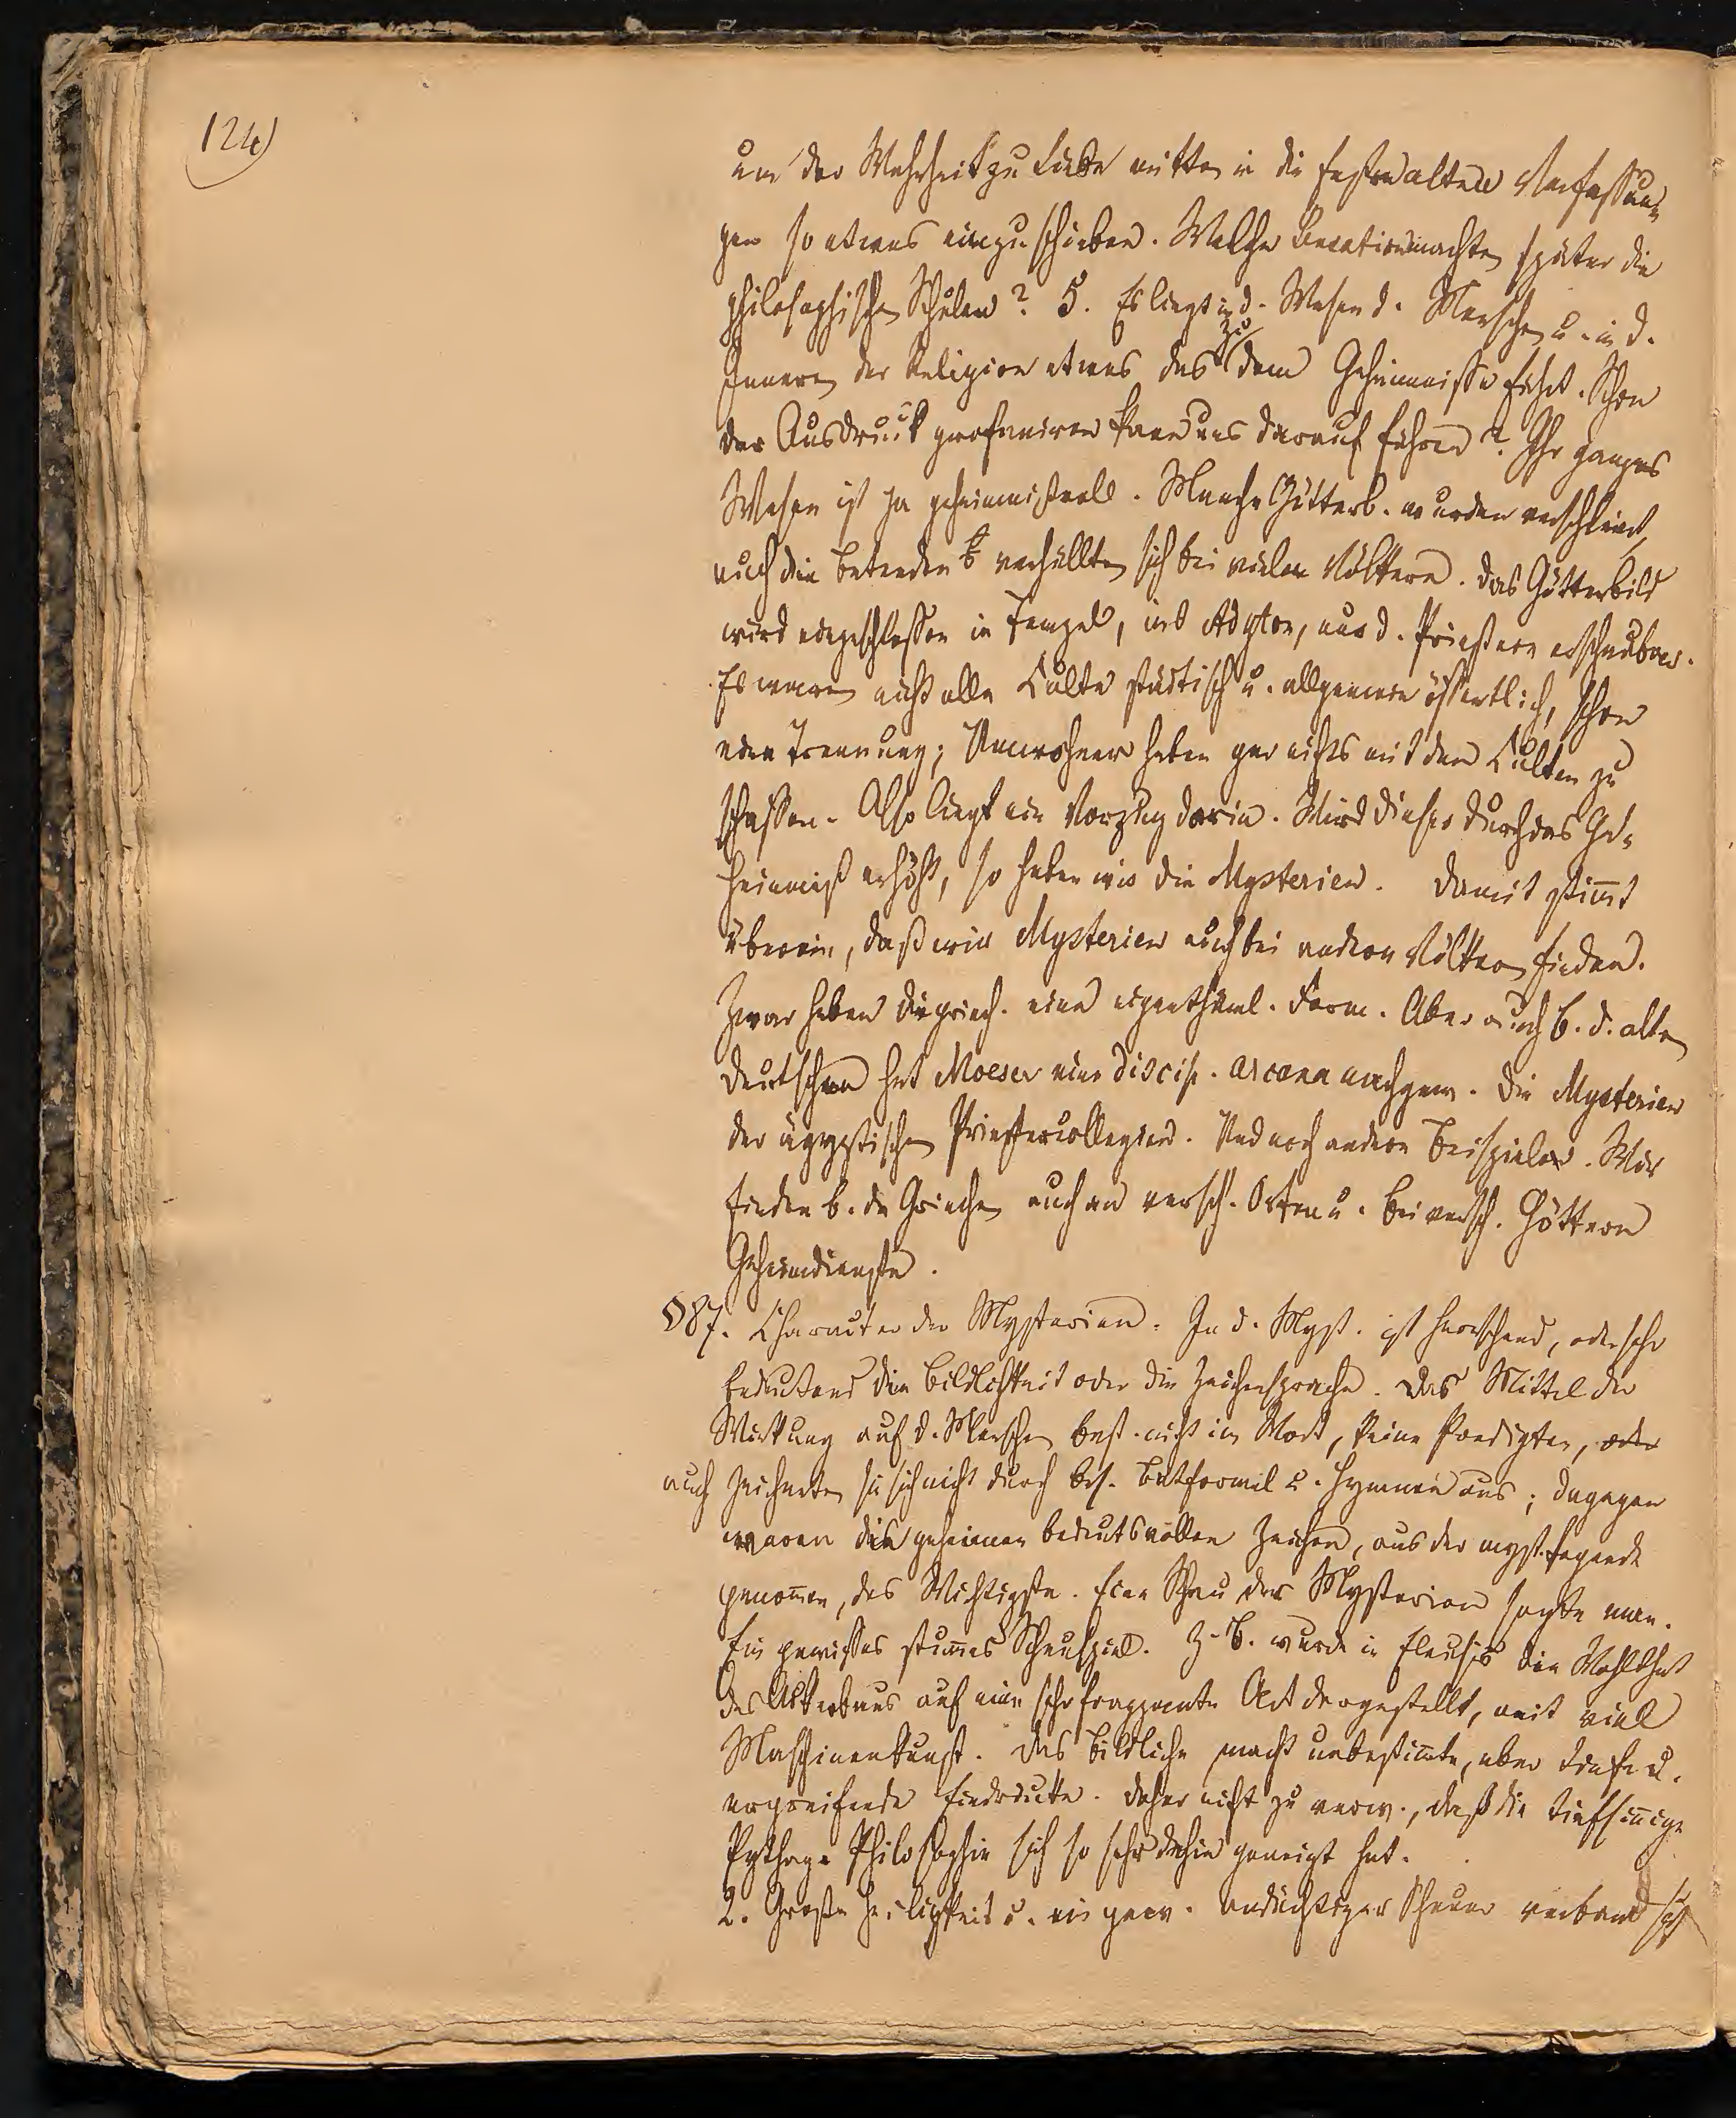 124)
um der Wahrheit zu Liebe mitten in die festen alten Verfassun-
gen so etwas einzuschieben. Welche Sensation machten später die
philosophischen Schulen? 5. Es liegt in d. Wesen d. Menschen u. in d.
Innern der Religion etwas das zu dem Geheimnisse führt. Schon
der Ausdruck profaniren kann uns darauf führen? Ihr ganzes
Wesen ist ja geheimnißvoll. Manche Götterb. wurden verschleiert,
auch die Betenden verhüllten sich bei vielen Völkern. Das Götterbild
wird eingeschlossen in Tempel, ins Adyton, nur d. Priestern erschaubar.
Es waren nicht alle Culte städtisch u. allgemein öffentlich, schon
eine Trennung; Umwohner haben gar nichts mit den Culten zu
schaffen. Also liegt ein Vorzug darin. Wird dieser durch das Ge-
heimniß erhöht, so haben wir die Mysterien. Damit stimt
überein, daß wir Mysterien auch bei andern Völkern finden.
Zwar haben die griech. eine eigenthüml. Form. Aber auch b. d. alten
Deutschen hat Moeser eine discip. arcana nachgew. Die Mysterien
der ägyptischen Priestercollegien. Und noch andere Beispiele. Wir
finden b. den Griechen auch an versch. Orten u. bei versch. Göttern
Geheimdienste.
§87. Character der Mysterien. In d. Myst. ist herrschend, oder sehr
bedeutend die Bildlichkeit oder die Zeichensprache. Das Mittel der
Wirkung auf d. Menschen best. nicht im Wort, keine Predigten, oder
auch zeichneten sie sich nicht durch bes. Betformel u. Hymnen aus; dagegen
waren die geheimen bedeutsvollen Zeichen, aus der myst. Legende
genomen, das Wichtigste. Eine Schau der Mysterien sagte man.
Ein gewisses stumes Schauspiel. Z. B. wurde in Eleusis die Wohlthat
des Ackerbaus auf eine sehr frappante Art dargestellt, mit viel
Maschinenkunst. Das Bildliche macht unbestimte, aber tiefe u.
ergreifende Eindrücke. Daher nicht zu verw., daß die tiefsinige
Pythag. Philosophie sich so sehr dahin geneigt hat.
2. Große Heiligkeit u. ein gew. andächtiger Schauer verband sich